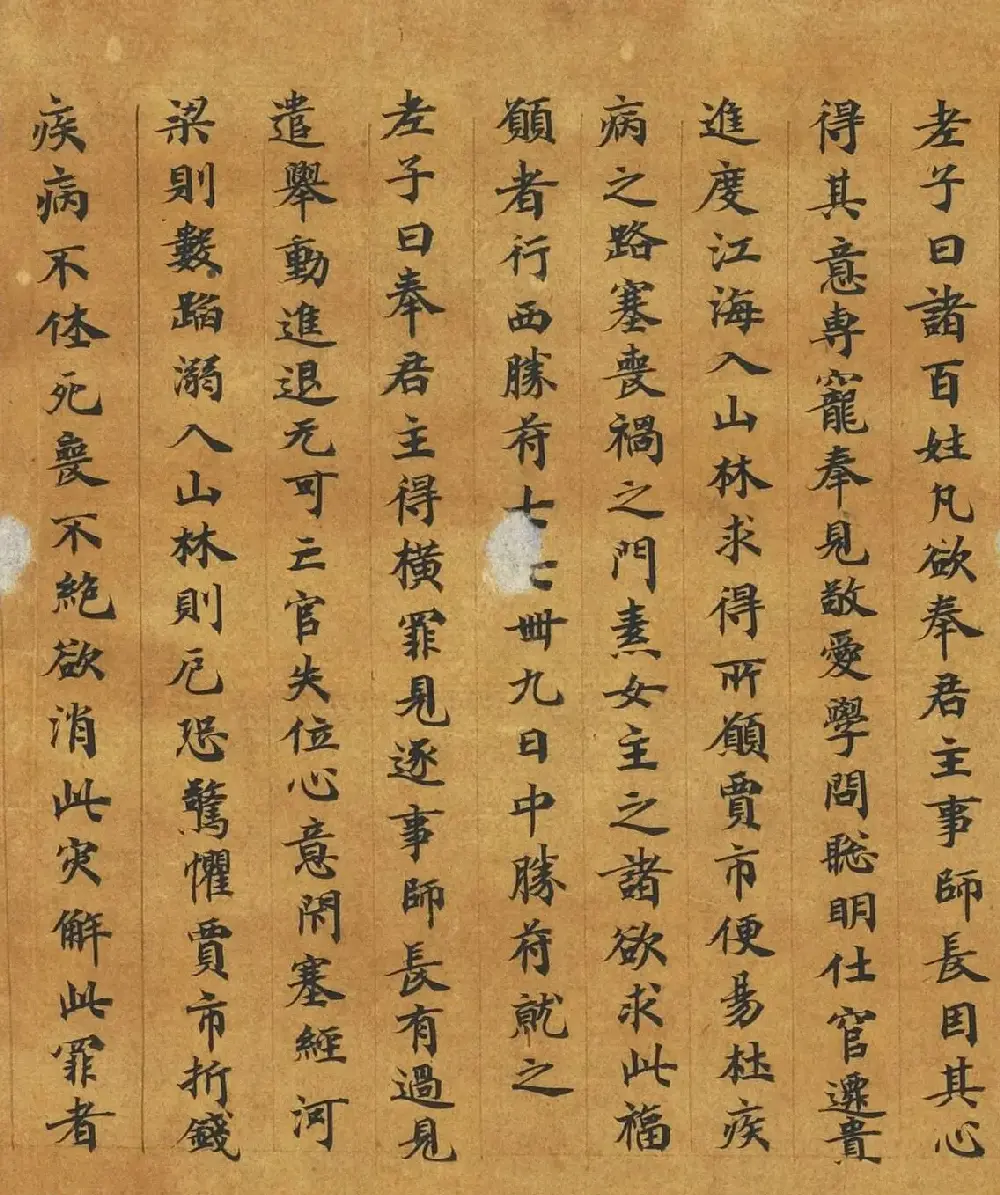 老子曰諸百姓凡欲奉君主事師長因其心
得其意専寵奉見敬愛學問聡明仕官遷貴
進度江海入山林求得所願賈市便易杜疾
病之路塞喪禍之門素女主之諸欲求此福
願者行西勝符七七卌九日中勝符就之
老子曰奉君主得横罪見逐事師長有過見
遣舉動進退无可亡官失位心意閇塞經河
梁則數蹈溺入山林則厄恐驚懼賈市折錢
疾病不体死喪不絶欲消此灾解此罪者